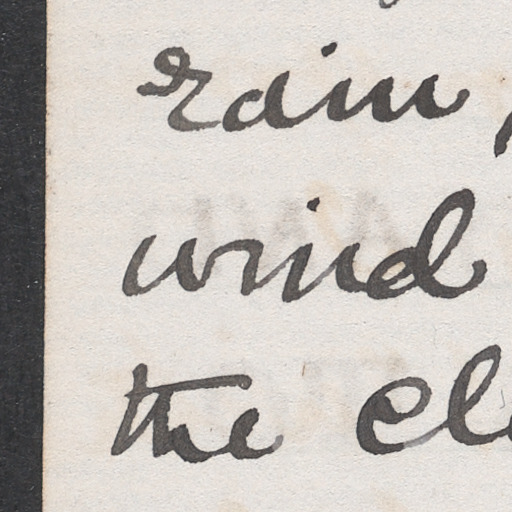 rain,
wind
the